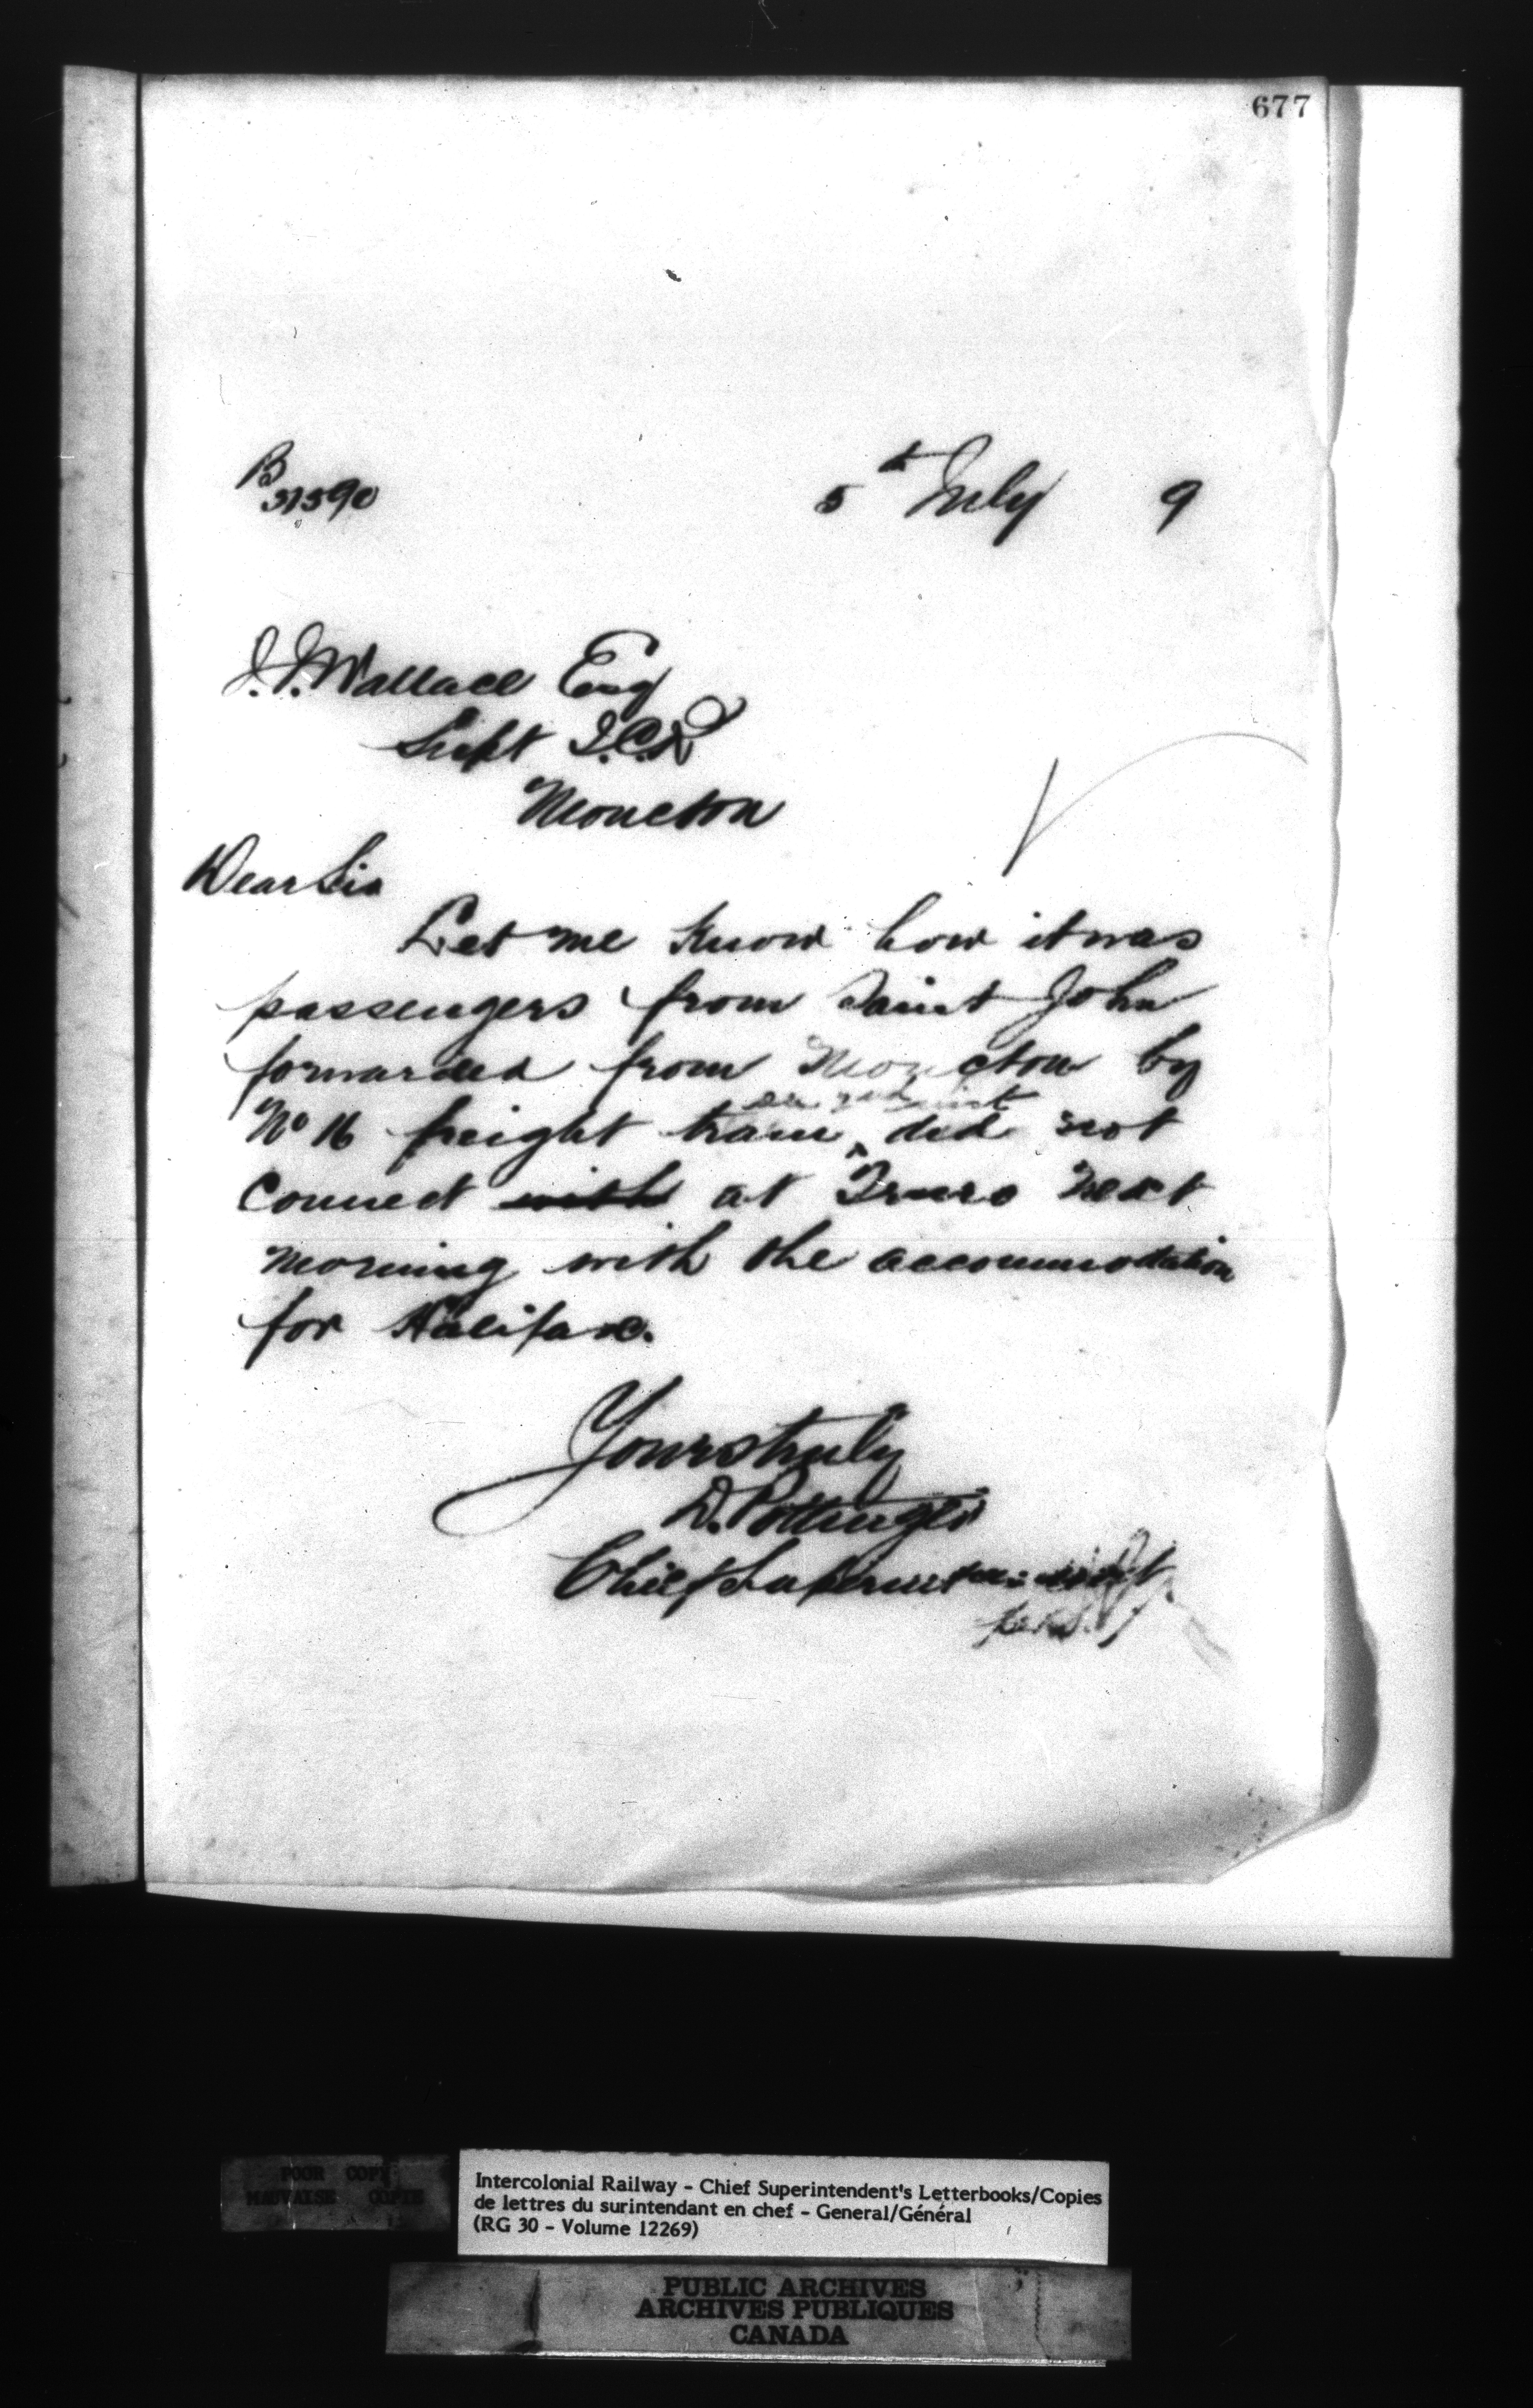 677
B
31590
5th July 9
J.J. Wallace Esq
Supt I.C.R
Moncton
Dear Sir
Let me know how it was
passengers from Saint John
forwarded from Moncton by
No 16 freight train did not
connect with at Truro next
morning with the accommodation
for Halifax.
Yours truly
D. Pottinger
Chief Superintendent
POOR COPY
MAUVAISE COPIE
Intercolonial Railway - Chief Superintendent's Letterbooks/Copies
de lettres du surintendant en chef - General/Général
(RG 30 - Volume 12269)
PUBLIC ARCHIVES
ARCHIVES PUBLIQUES
CANADA